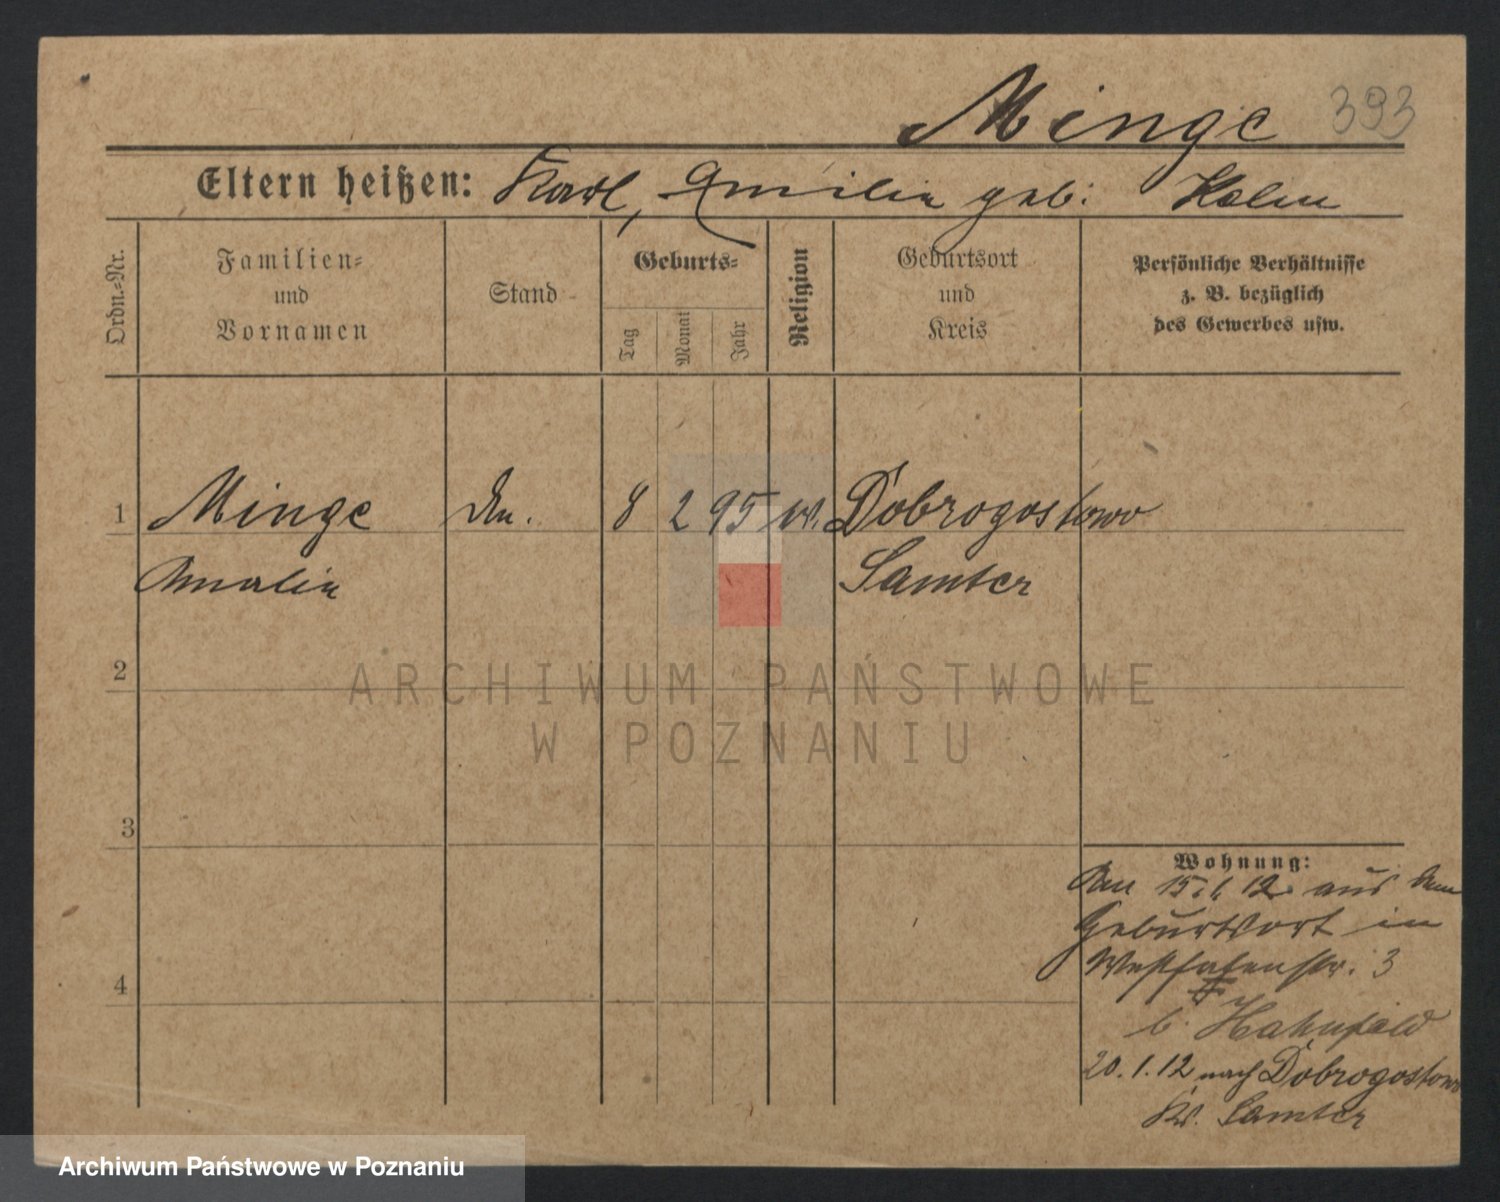 Minge 393
Eltern heißen: Karl, Emilie geb:
Ordn.-Nr.
Familien-
und
Vornamen
Stand
Geburts-
Tag
Monat
Jahr
Religion
Geburtsort
und
Kreis
Persönliche Verhältnisse
z. B. bezüglich
des Gewerbes usw.
1 Minge 8 2 95 Dobrogostowo
Amalie Samter
2
3
4
Wohnung:
Am 15.1.12 aus dem
Geburtsort in
Westfalenstr. 3
b. Hahnfeld
20.1.12 nach Dobrogostowo
Kr. Samter
ARCHIWUM PAŃSTWOWE
W POZNANIU
Archiwum Państwowe w Poznaniu